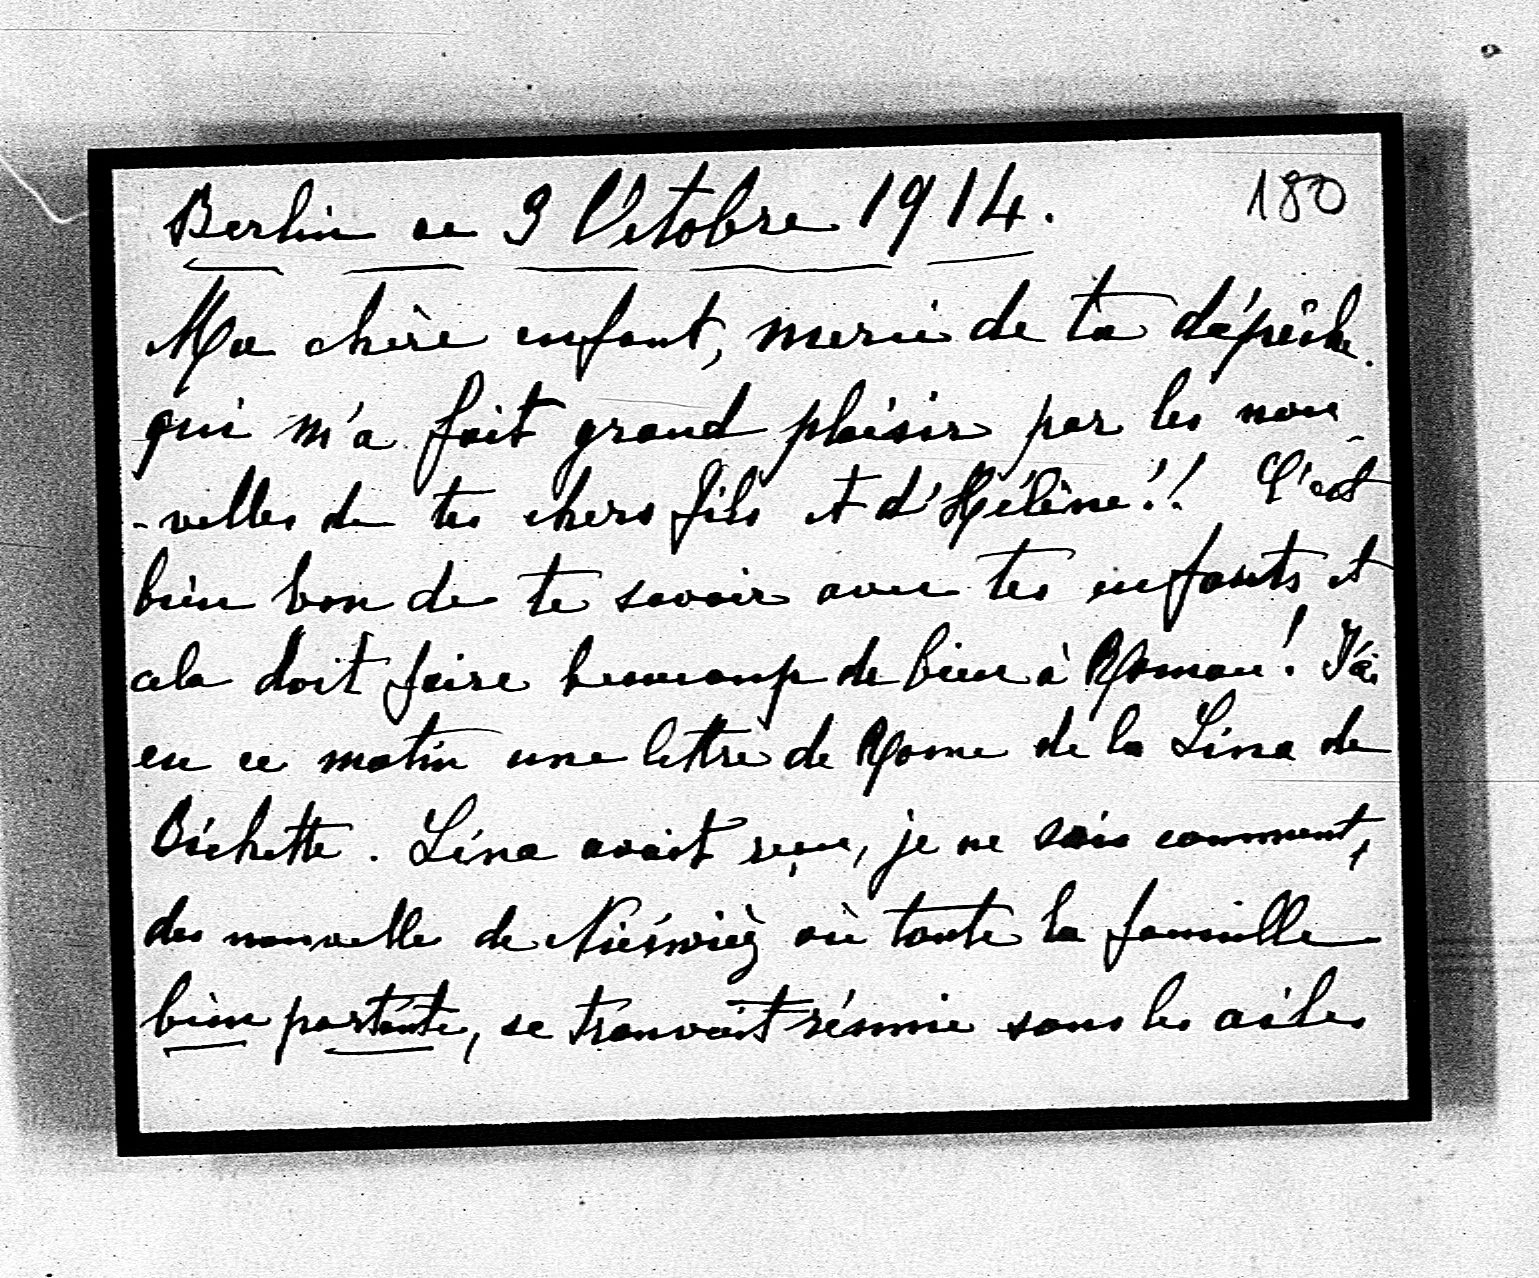 180
Berlin ce 3 Octobre 1914.
Ma chère enfant, merci de ta dépêche
qui m'a fait grand plaisir par les nou
-velles de tes chers fils et d'Hélène!! C'est
bien bon de te savoir avec tes enfants et
cela doit faire beaucoup de bien à Roman! J'ai
eu ce matin une lettre de Rome de la Lina de
Bichette. Lina avait reçu, je ne sais comment,
des nouvelle de Nieświéz où toute la famille
bien portante, se trouvait réunie sous les ailes